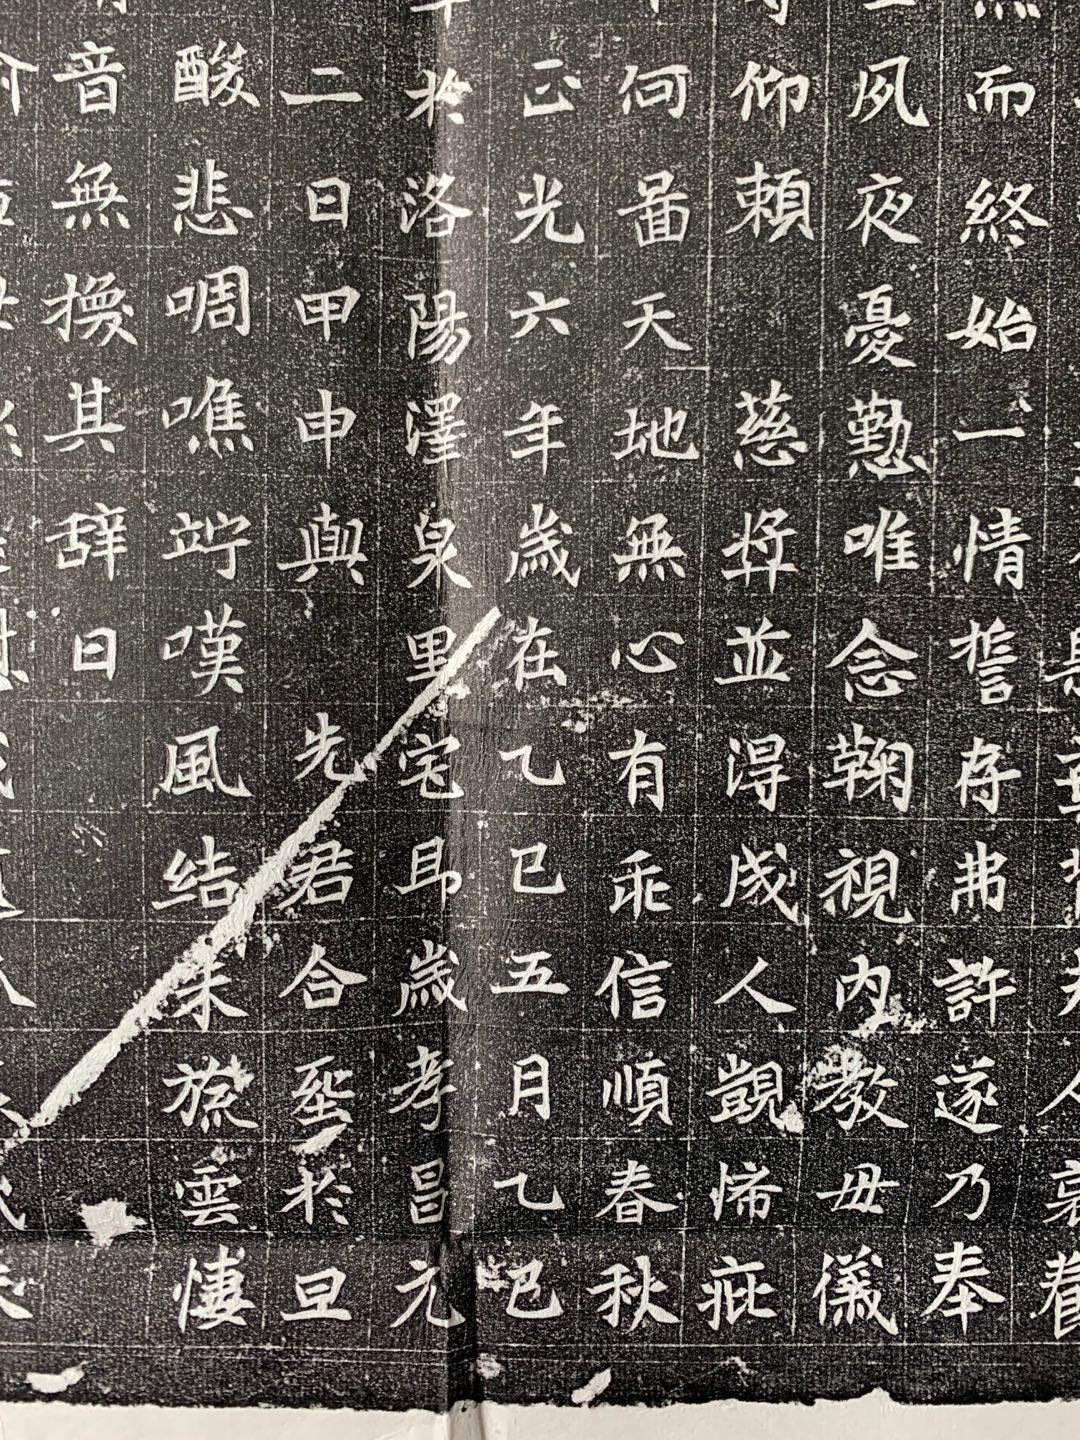 而終始一情誓存弗許遂乃奉
夙夜憂懃唯念鞠視內教毋儀
仰賴慈將並得成人覬悕疵
何啚天地無心有乖信順春秋
正光六年歲在乙巳五月乙巳
於洛陽澤泉里宅耳歲孝昌元
二日甲申與先君合塟於旦
酸悲啁噍竚嘆風結未旒雲悽
音無擾其辞曰